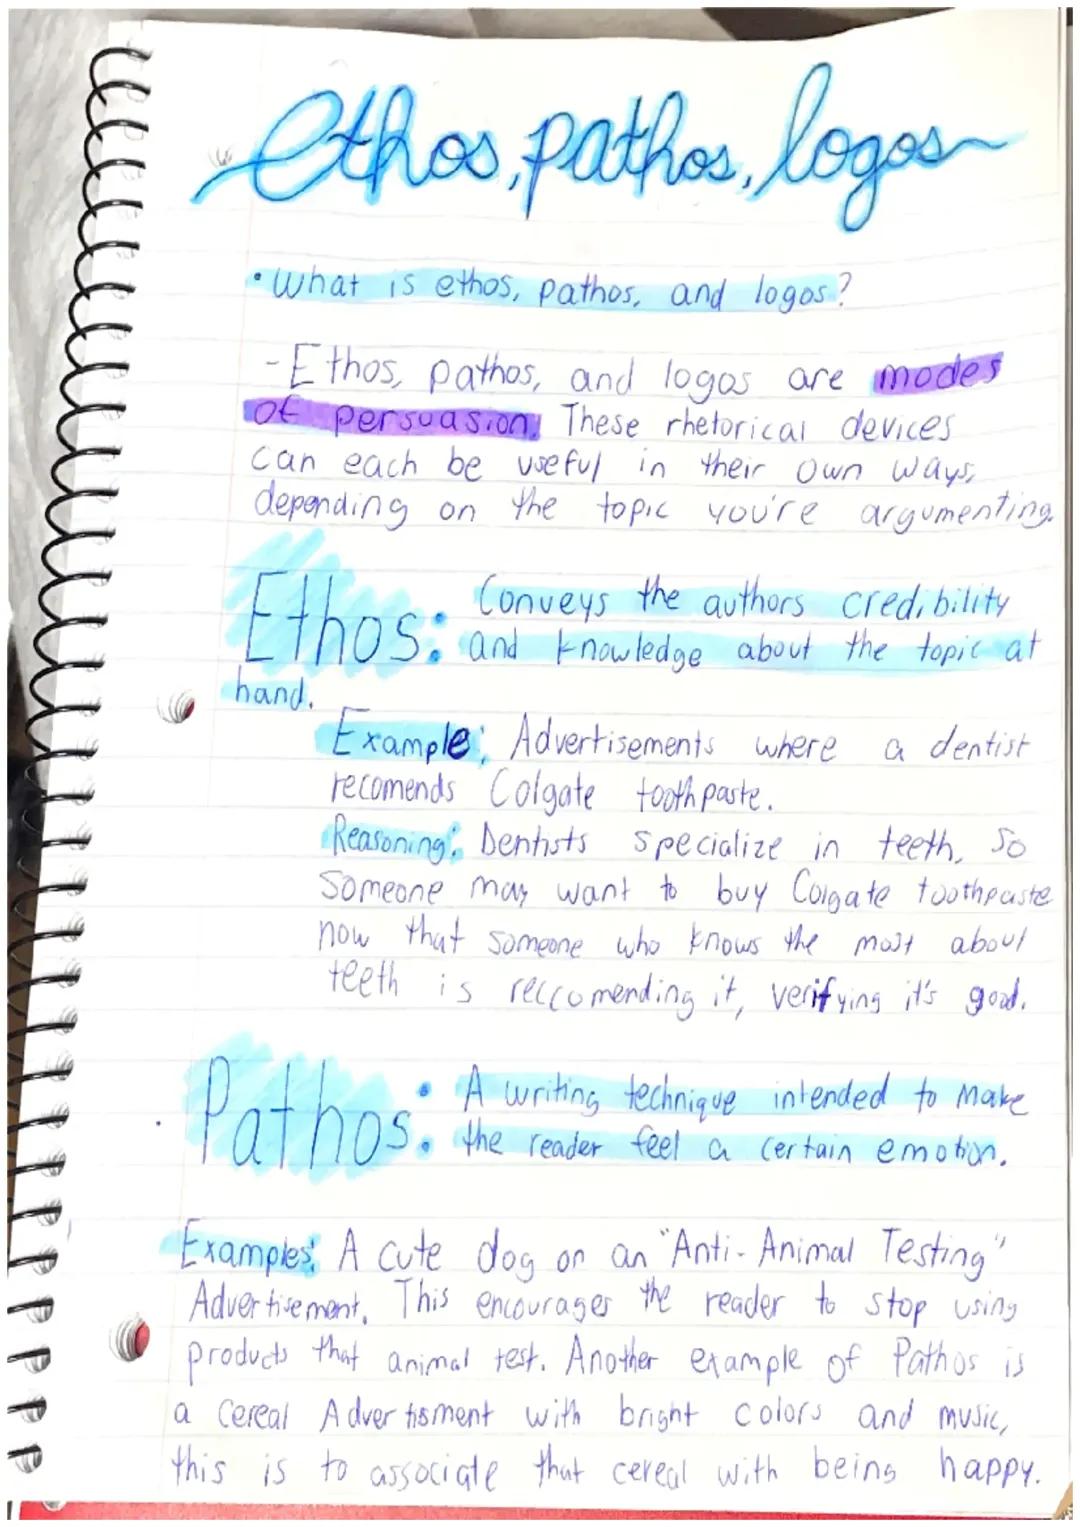 ethos, pathos, logos
• What is ethos, pathos, and logos?
- Ethos, pathos, and logos are modes
of persuasion. These rhetorical devices
can each be useful in their own ways,
depending on the topic you're argumenting.
Ethos: Conveys the authors credibility
and knowledge about the topic at
hand.
Example: Advertisements where a dentist
recomends Colgate toothpaste.
Reasoning: Dentists specialize in teeth, so
someone may want to buy Colgate toothpaste
now that someone who knows the most about
teeth is reccomending it, verifying it's good.
Pathos: A writing technique intended to make
the reader feel a certain emotion.
Examples: A cute dog on an "Anti-Animal Testing"
Advertisement. This encourages the reader to stop using
products that animal test. Another example of Pathos is
a Cereal Advertisment with bright colors and music,
this is to associate that cereal with being happy.